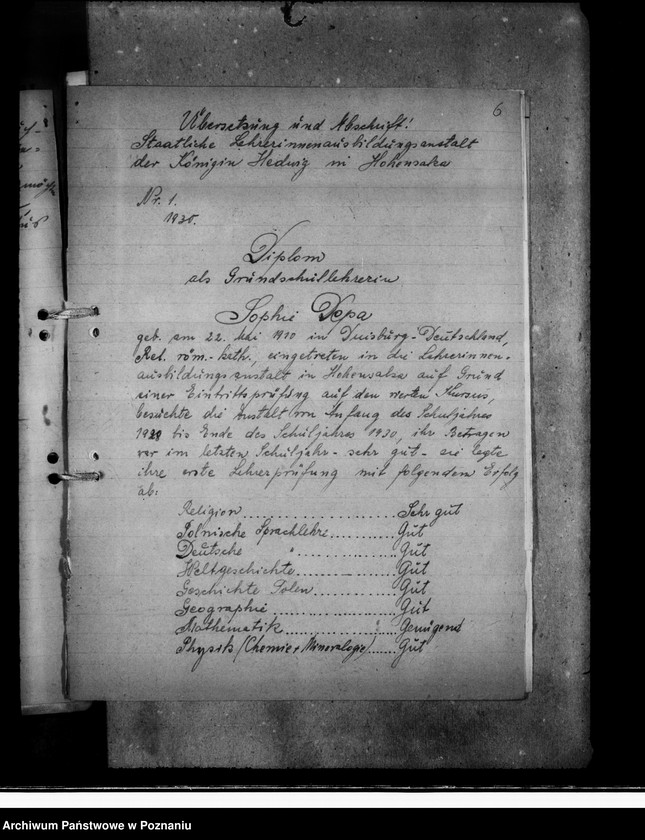 6
Übersetzung und Abschrift!
Staatliche Lehrerinnenausbildungsanstalt
der Königin Hedwig in Hohensalza
Nr. 1.
1930.
Diplom
als Grundschullehrerin
Sophie Depa
geb. am 22. Mai 1910 in Duisburg-Deutschland,
Rel. röm.-kath., eingetreten in die Lehrerinnen-
ausbildungsanstalt in Hohensalza auf Grund
einer Eintrittsprüfung auf den vierten Kursus,
besuchte die Anstalt von Anfang des Schuljahres
bis Ende des Schuljahres 1930, ihr Betragen
war im letzten Schuljahr - sehr gut - sie legte
ihre erste Lehrerprüfung mit folgendem Erfolg
ab:
Religion.......................Sehr gut
Polnische Sprachlehre..........Gut
Deutsche " ...............Gut
Weltgeschichte.................Gut
Geschichte Polen...............Gut
Geographie.....................Gut
Mathematik.....................Genügend
Physik (Chemie + Mineralogie)......Gut
Archiwum Państwowe w Poznaniu